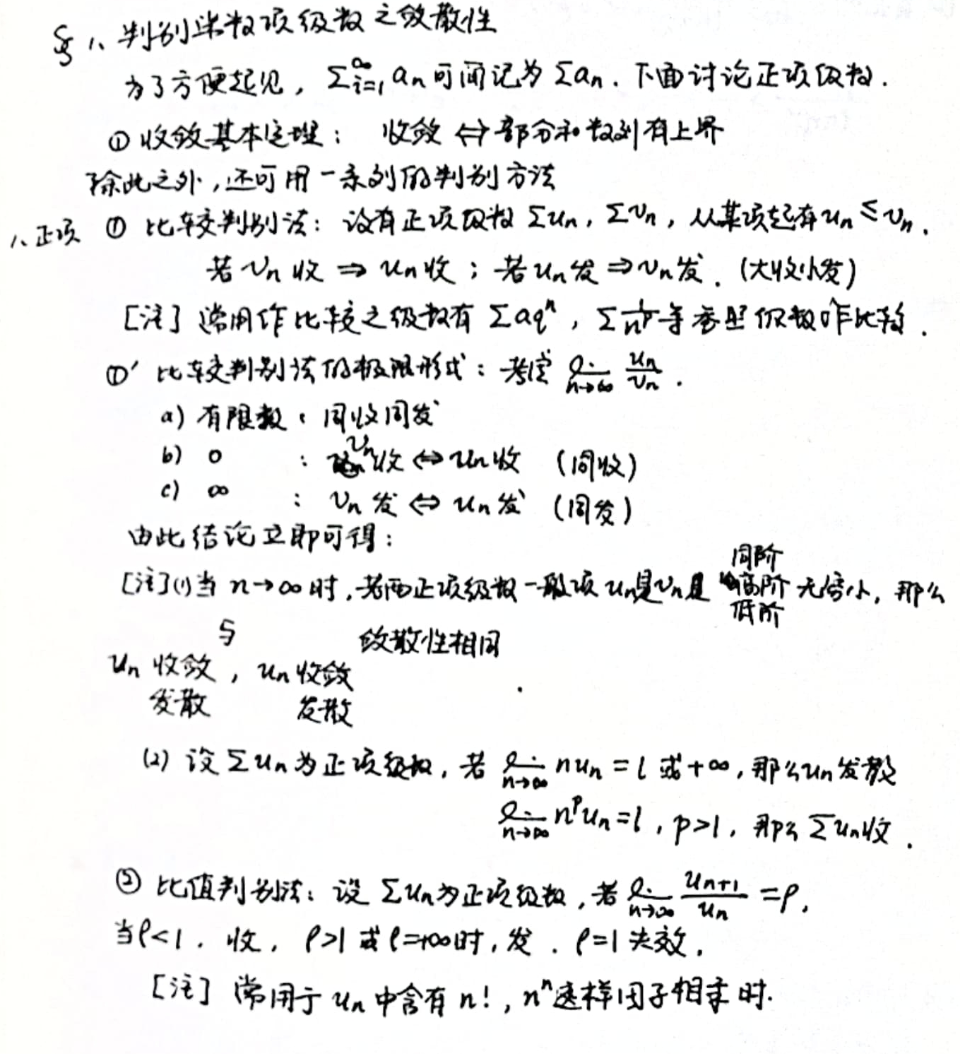 § 1、判别常数项级数之敛散性
为了方便起见，∑_{i=1}^{∞} a_n 可简记为 ∑a_n．下面讨论正项级数．
① 收敛基本定理： 收敛 ⇔ 部分和数列有上界
除此之外，还可用一系列的判别方法
1、正项 ① 比较判别法：设有正项级数 ∑u_n，∑v_n，从某项起有 u_n ≤ v_n．
若 v_n 收 ⇒ u_n 收；若 u_n 发 ⇒ v_n 发．(大收小发)
[注] 常用作比较之级数有 ∑aq^n，∑1/n^p 等参照级数作比较．
①′ 比较判别法的极限形式：考虑 lim_{n→∞} u_n/v_n．
a) 有限数：同收同发
b) 0 ： v_n 收 ⇔ u_n 收 (同收)
c) ∞ ： v_n 发 ⇔ u_n 发 (同发)
由此结论立即可得：
同阶
[注](1) 当 n→∞ 时，若两正项级数一般项 u_n 是 v_n 是 高阶 无穷小，那么
低阶
与 敛散性相同
u_n 收敛，u_n 收敛
发散 发散
(2) 设 ∑u_n 为正项级数，若 lim_{n→∞} nu_n = l 或 +∞，那么 u_n 发散
lim_{n→∞} n^p u_n = l，p>1，那么 ∑u_n 收．
② 比值判别法：设 ∑u_n 为正项级数，若 lim_{n→∞} u_{n+1}/u_n = ρ．
当 ρ<1．收，ρ>1 或 ρ=+∞ 时，发．ρ=1 失效．
[注] 常用于 u_n 中含有 n!，n^n 这样因子相乘时．